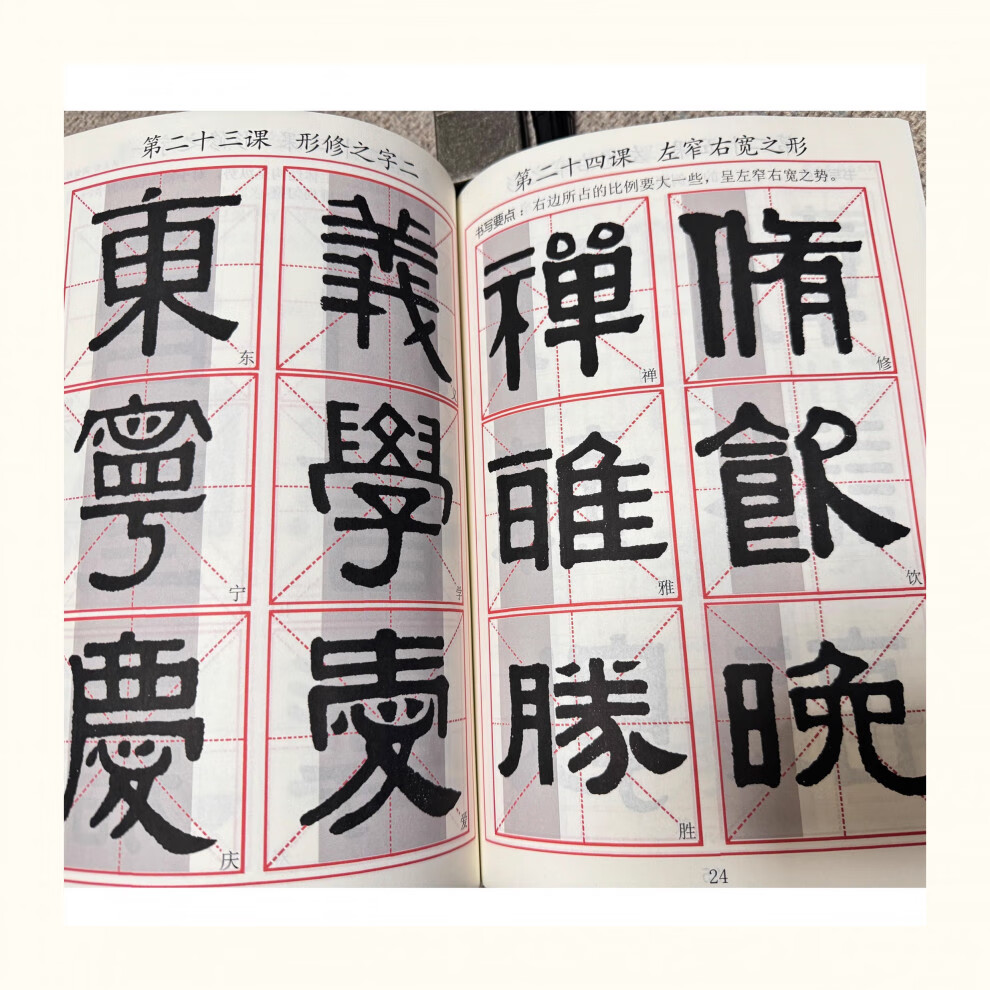 第二十三课 形修之字二
東 義
东 义
寧 學
宁 学
慶 愛
庆 爱
第二十四课 左窄右宽之形
书写要点：右边所占的比例要大一些，呈左窄右宽之势。
禪 脩
禅 修
雅 飲
雅 饮
勝 晚
胜
24